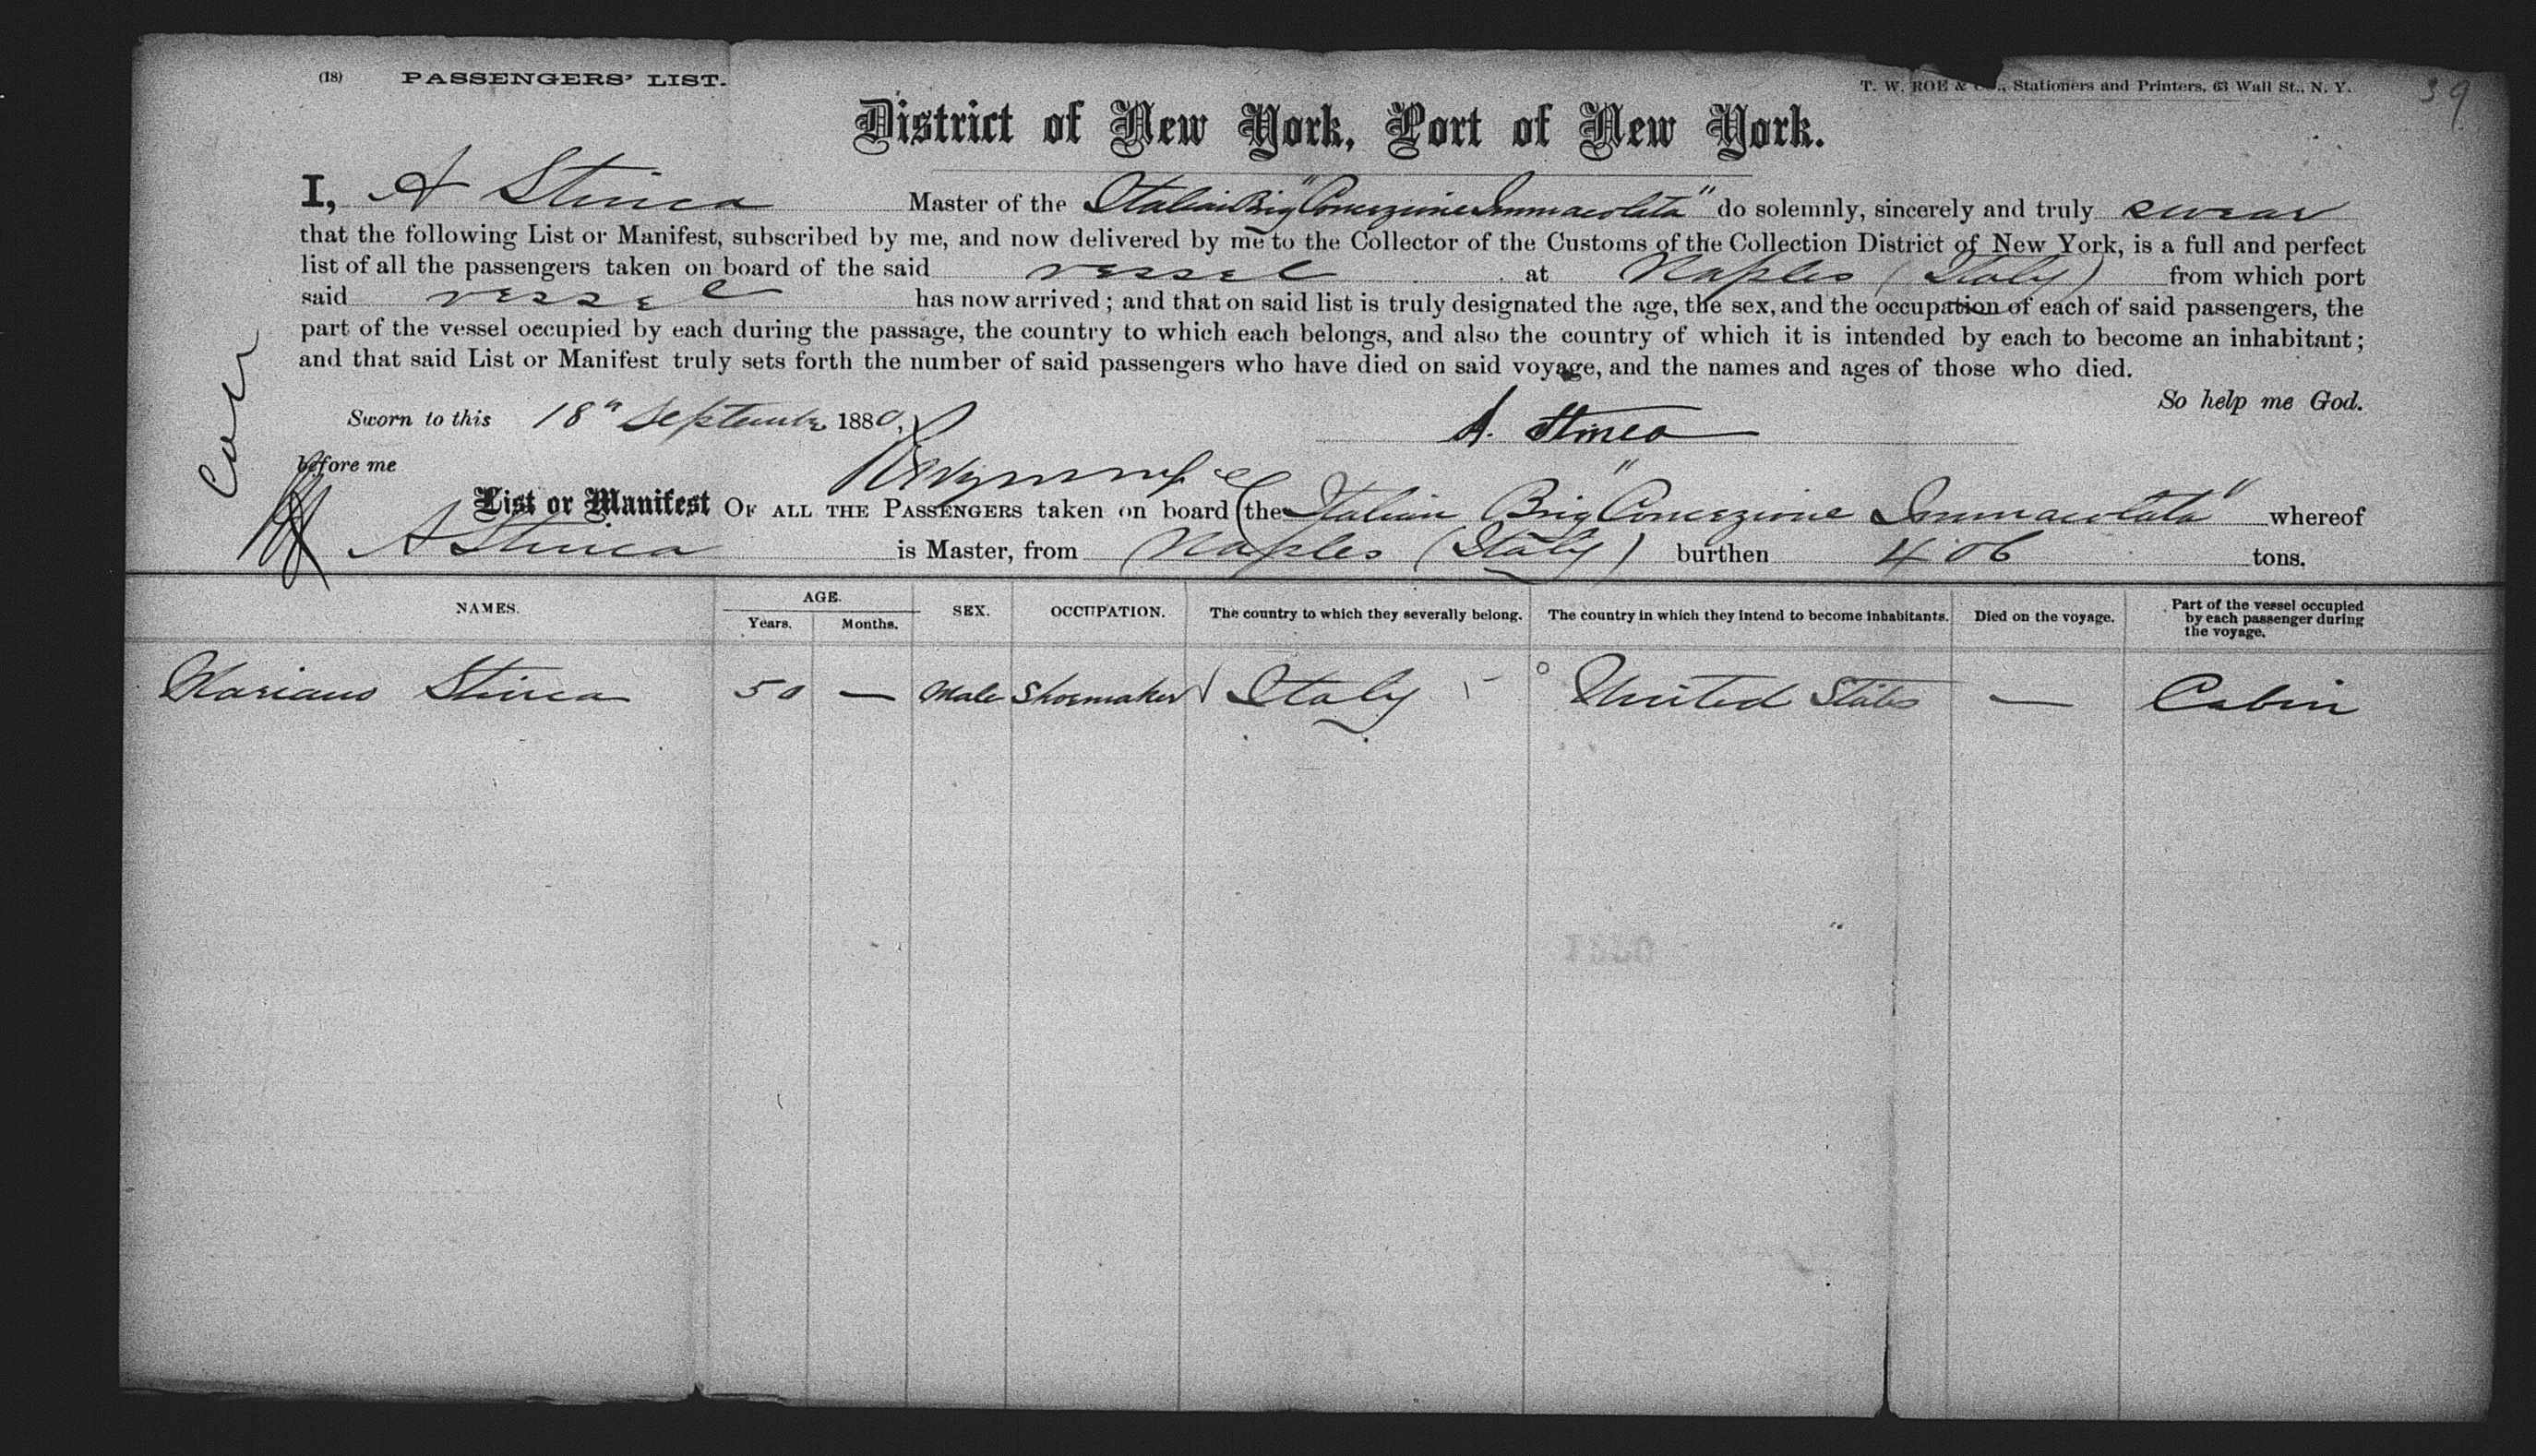 (18) PASSENGERS' LIST.
T. W. ROE & Co., Stationers and Printers, 63 Wall St., N. Y.
39
District of New York, Port of New York.
I, A Stinca Master of the Italian Brig "Concezione Immacolata" do solemnly, sincerely and truly swear
that the following List or Manifest, subscribed by me, and now delivered by me to the Collector of the Customs of the Collection District of New York, is a full and perfect
list of all the passengers taken on board of the said vessel at Naples (Italy) from which port
said vessel has now arrived; and that on said list is truly designated the age, the sex, and the occupation of each of said passengers, the
part of the vessel occupied by each during the passage, the country to which each belongs, and also the country of which it is intended by each to become an inhabitant;
and that said List or Manifest truly sets forth the number of said passengers who have died on said voyage, and the names and ages of those who died.
So help me God.
Sworn to this 18" September 1880,
A. Stinca
before me
List or Manifest OF ALL THE PASSENGERS taken on board the Italian Brig "Concezione Immacolata" whereof
A Stinca is Master, from Naples (Italy) burthen 406 tons.
NAMES. AGE. Years. Months. SEX. OCCUPATION. The country to which they severally belong. The country in which they intend to become inhabitants. Died on the voyage. Part of the vessel occupied by each passenger during the voyage.
Mariano Stinca 50 — Male Shoemaker Italy United States — Cabin